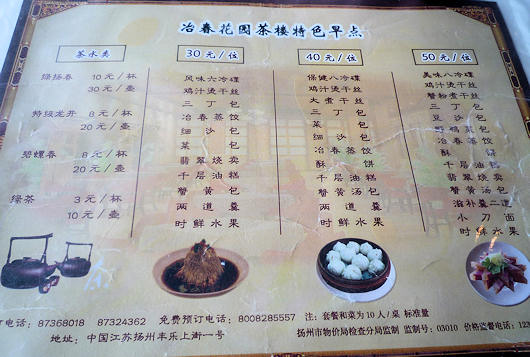 冶春花园茶楼特色早点
茶水类
绿扬春 10元/杯
30元/壶
特级龙井 8元/杯
20元/壶
碧螺春 8元/杯
20元/壶
绿茶 3元/杯
10元/壶
30元/位
风味六冷碟
鸡汁烫干丝
三丁包
冶春蒸饺
细沙包
菜包
翡翠烧卖
千层油糕
蟹黄包
两道羹
时鲜水果
40元/位
保健八冷碟
鸡汁烫干丝
大煮干丝
三丁包
菜包
细沙包
冶春蒸饺
酥饼
千层油糕
蟹黄汤包
两道羹
时鲜水果
50元/位
美味八冷碟
鸡汁烫干丝
蟹粉煮干丝
三丁包
豆沙包
野鸭菜包
冶春蒸饺
酥饼
千层油糕
翡翠烧卖
蟹黄汤包
滋补羹二道
小刀面
时鲜水果
订电话：87368018 87324362 免费预订电话：8008285557 注：套餐和菜为10人/桌 标准量
地址：中国江苏扬州丰乐上街一号 扬州市物价局检查分局监制 监制号：03010 价格监督电话：123